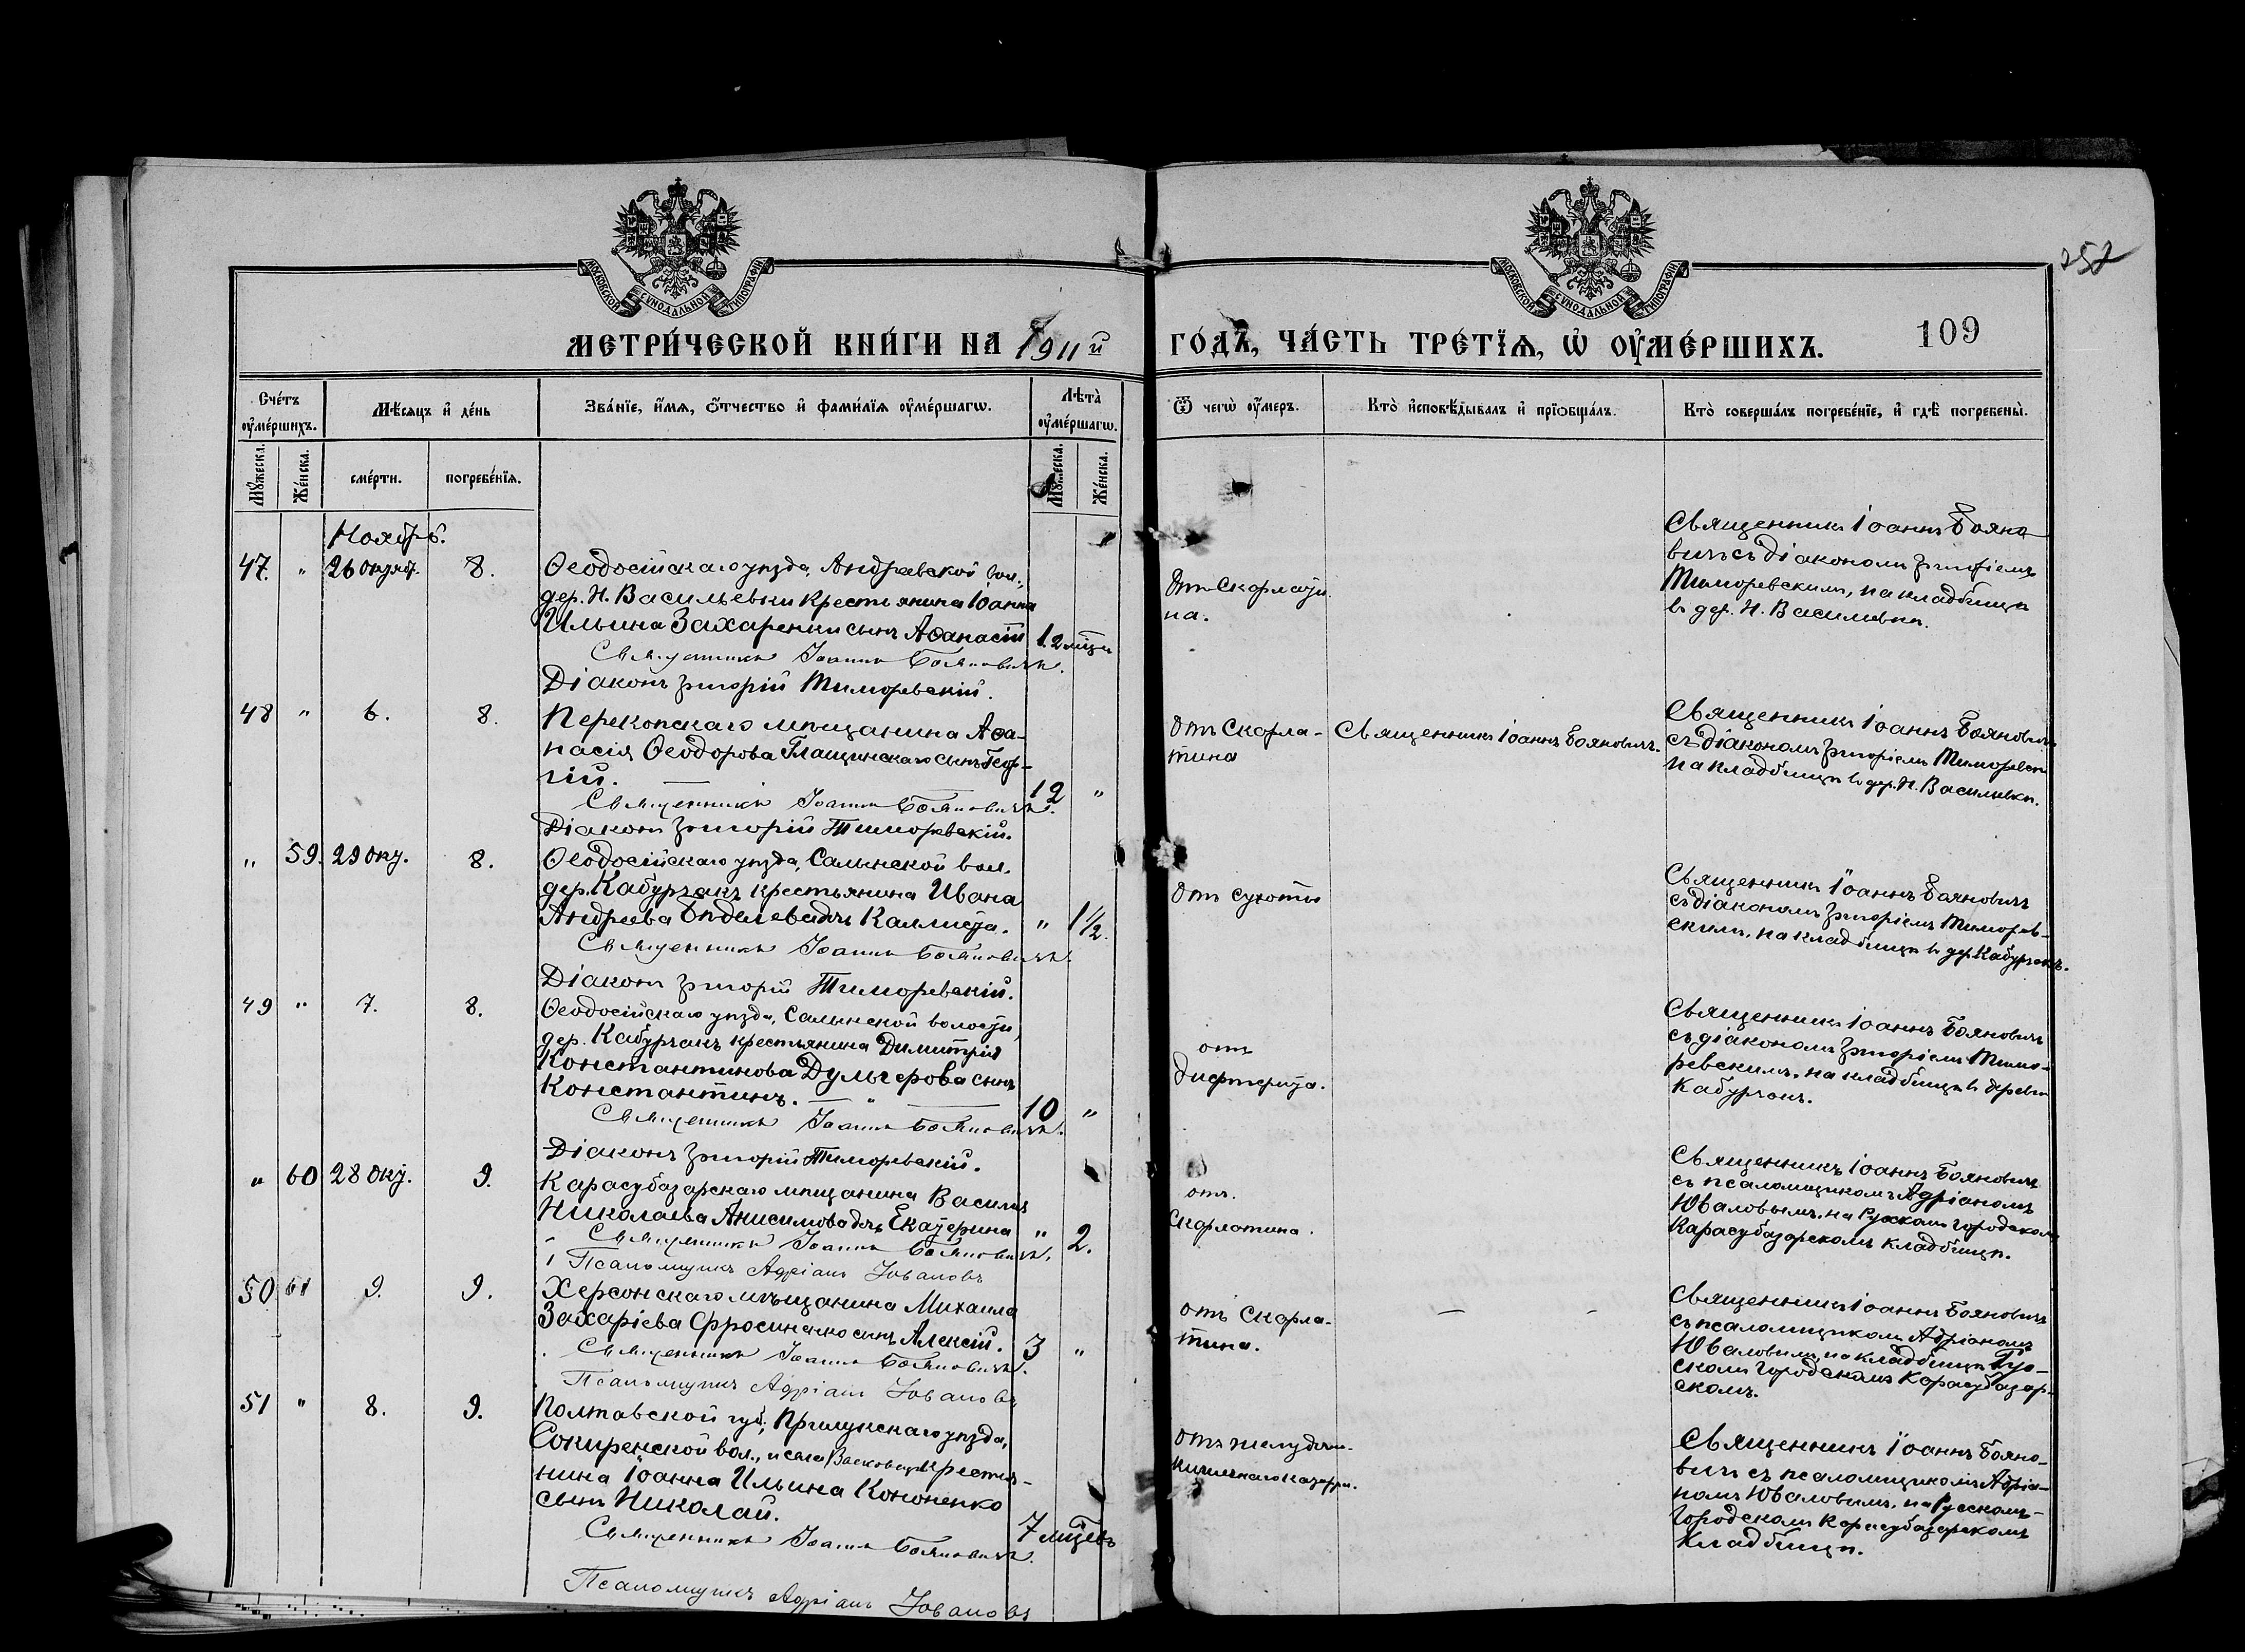 МОСКОВСКОЙ СѴНОДАЛЬНОЙ ТИПОГРАФІИ
МОСКОВСКОЙ СѴНОДАЛЬНОЙ ТИПОГРАФІИ
252
МЕТРИ́ЧЕСКОЙ КНИ́ГИ НА 1911й ГО́ДЪ, ЧА́СТЬ ТРЕ́ТЇѦ, Ѡ҆ ОУ҆МЕ́РШИХЪ.
109
Сче́тъ оу҆ме́ршихъ.
Мѣ́сяцъ и҆ де́нь
Зва́нїе, и҆́мя, ѻ҆́тчество и҆ фами́лїя оу҆ме́ршагѡ.
Лѣ́та оу҆ме́ршагѡ.
Ѿ чегѡ̀ оу҆́меръ.
Кто̀ и҆сповѣ́дывалъ и҆ прїобща́лъ.
Кто̀ соверша́лъ погребе́нїе, и҆ гдѣ̀ погребены̀.
Мꙋ́жеска.
Же́нска.
сме́рти.
погребе́нїя.
Мꙋ́жеска.
Же́нска.
Ноябрь.
47. " 26 октяб. 8.
Ѳеодосійскаго уѣзда, Андреевской вол.,
дер. Н. Васильевки крестьянина Іоанна
Ильина Захаренки сынъ Аѳанасій
12 мѣс.
Священникъ Іоаннъ Бояновичъ.
Діаконъ Григорій Тиморевскій.
Отъ скарлати
на.
Священникъ Іоаннъ Бояно
вичъ съ діакономъ Григоріемъ
Тиморевскимъ, на кладбищѣ
въ дер. Н. Васильевкѣ.
48 " 6. 8.
Перекопскаго мѣщанина Аѳа-
насія Ѳеодорова Глащинскаго сынъ Геор-
гій.
12 "
Священникъ Іоаннъ Бояновичъ.
Діаконъ Григорій Тиморевскій.
Отъ скарла-
тина
Священникъ Іоаннъ Бояновичъ.
Священникъ Іоаннъ Бояновичъ
съ діакономъ Григоріемъ Тиморевск
на кладбищѣ въ дер. Н. Васильевкѣ.
" 59. 29 окт. 8.
Ѳеодосійскаго уѣзда, Салынской вол.
дер. Кабурчакъ крестьянина Ивана
Андреева дочь Каллиста.
" 1 1/2.
Священникъ Іоаннъ Бояновичъ.
Діаконъ Григорій Тиморевскій.
Отъ сухоты
Священникъ Іоаннъ Бояновичъ
съ діакономъ Григоріемъ Тиморев-
скимъ, на кладбищѣ въ дер. Кабурчакъ.
49 " 7. 8.
Ѳеодосійскаго уѣзда, Салынской волости,
дер. Кабурчакъ крестьянина Димитрія
Константинова Дульгерова сынъ
Константинъ.
10 "
Священникъ Іоаннъ Бояновичъ.
Діаконъ Григорій Тиморевскій.
отъ
Дифтерита.
Священникъ Іоаннъ Бояновичъ
съ діакономъ Григоріемъ Тимо-
ревскимъ, на кладбищѣ въ деревнѣ
Кабурчакъ.
" 60 28 окт. 9.
Карасубазарскаго мѣщанина Василія
Николаева Анисимова дочь Екатерина
" 2.
Священникъ Іоаннъ Бояновичъ.
Псаломщикъ Адріанъ Юваловъ
отъ
Скарлатина.
Священникъ Іоаннъ Бояновичъ
съ псаломщикомъ Адріаномъ
Юваловымъ, на Русскомъ городском
Карасубазарскомъ кладбищѣ.
50. 61 9. 9.
Херсонскаго мѣщанина Михаила
Захаріева Фросиненко сынъ Алексій.
3 "
Священникъ Іоаннъ Бояновичъ.
Псаломщикъ Адріанъ Юваловъ
отъ скарла-
тина.
Священникъ Іоаннъ Бояновичъ
съ псаломщикомъ Адріаномъ
Юваловымъ, на кладбищѣ Рус-
скомъ городскомъ Карасубазар-
скомъ.
51 " 8. 9.
Полтавской губ., Прилукскаго уѣзда,
Сокиренской вол., и села Васковецъ крестья-
нина Іоанна Ильина Кононенко
сынъ Николай.
7 мѣсяцевъ
Священникъ Іоаннъ Бояновичъ.
Псаломщикъ Адріанъ Юваловъ
отъ желудочн.
кишечнаго катарра.
Священникъ Іоаннъ Бояно-
вичъ съ псаломщикомъ Адріа-
номъ Юваловымъ, на Русскомъ-
Городскомъ Карасубазарскомъ
кладбищѣ.